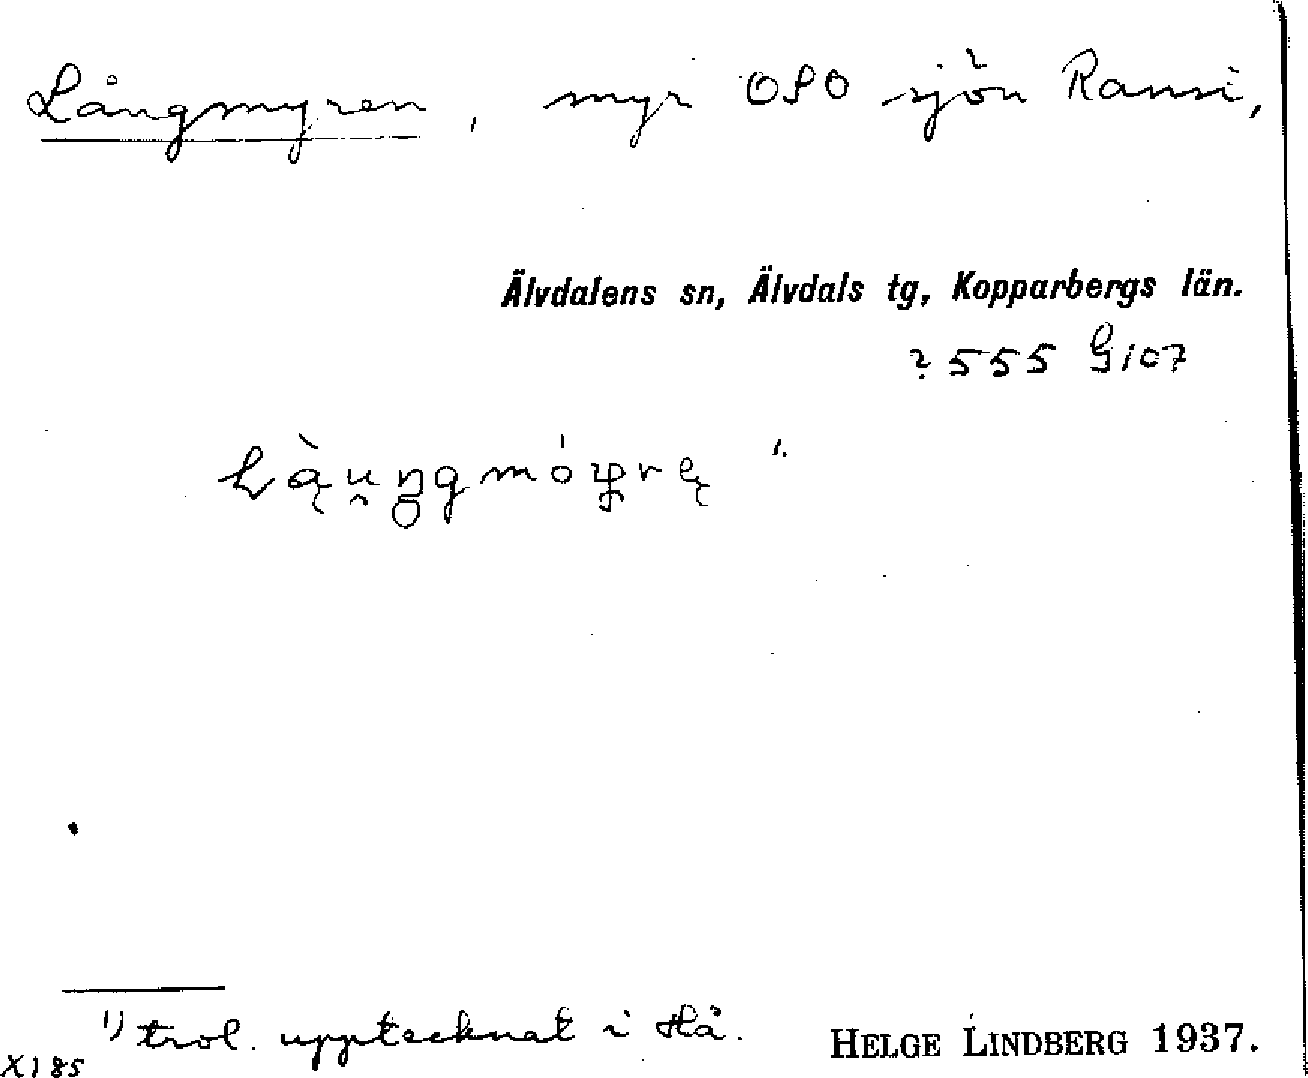 Långmyren, myr OSO sjön Ransi,
Älvdalens sn, Älvdals tg, Kopparbergs län.
? 555 G 107
1)
1) trol. upptecknat i Hå.
HELGE LINDBERG 1937.
X185